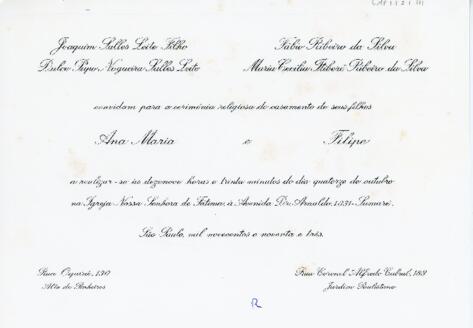 Joaquim Salles Leite Filho
Dulce Nogueira Salles Leite
Fábio Ribeiro da Silva
Maria Cecilia Ribeiro da Silva
convidam para a cerimônia religiosa do casamento de seus filhos
Ana Maria e Filipe
a realizar-se às dezenove horas e trinta minutos do dia quatorze de outubro
na Igreja Nossa Senhora de Fátima, à Avenida Dr. Arnaldo, 1831 - Sumaré.
São Paulo, mil novecentos e noventa e três.
130
Alto de Pinheiros
Rua Coronel Alfredo Cabral, 183
Jardim Paulistano
R